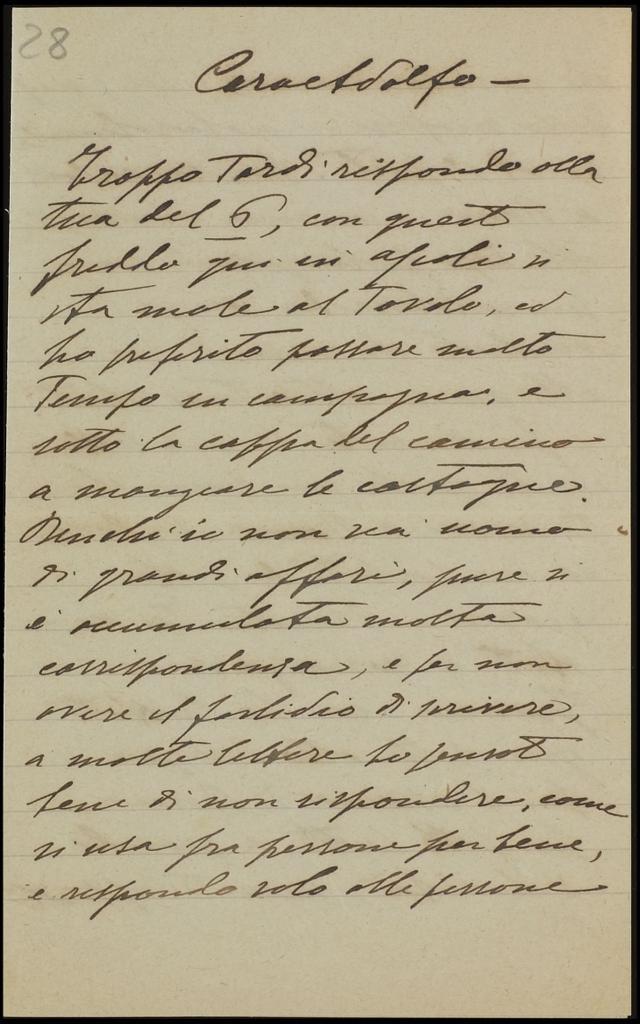 28
Caro Adolfo —
Troppo Tardi rispondo alla
tua del 6, con questo
freddo qui in Ascoli si
sta male al Tavolo, ed
ho preferito passare molto
Tempo in campagna, e
sotto la cappa del camino
a mangiare le castagne.
Benchè io non sia uomo
di grandi affari, pure si
è accumulata molta
corrispondenza, e per non
avere il fastidio di scrivere,
a molte lettere ho pensato
bene di non rispondere, come
si usa fra persone per bene,
e rispondo solo alle persone